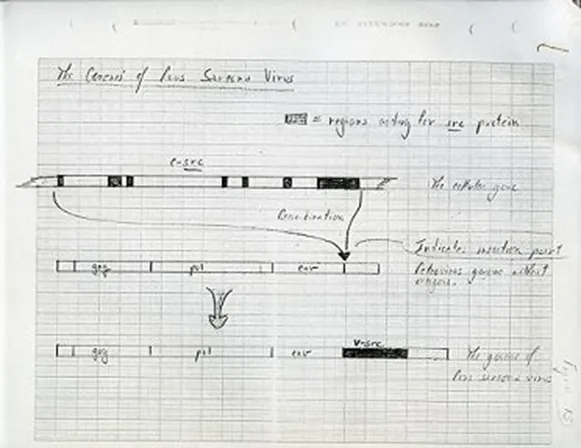 The Genesis of Rous Sarcoma Virus
= regions coding for src protein
c-src
The cellular gene
Combination
Indicates insertion point
gag pol env
Retrovirus genome without
gag pol env v-src
The genome of
Rous sarcoma virus